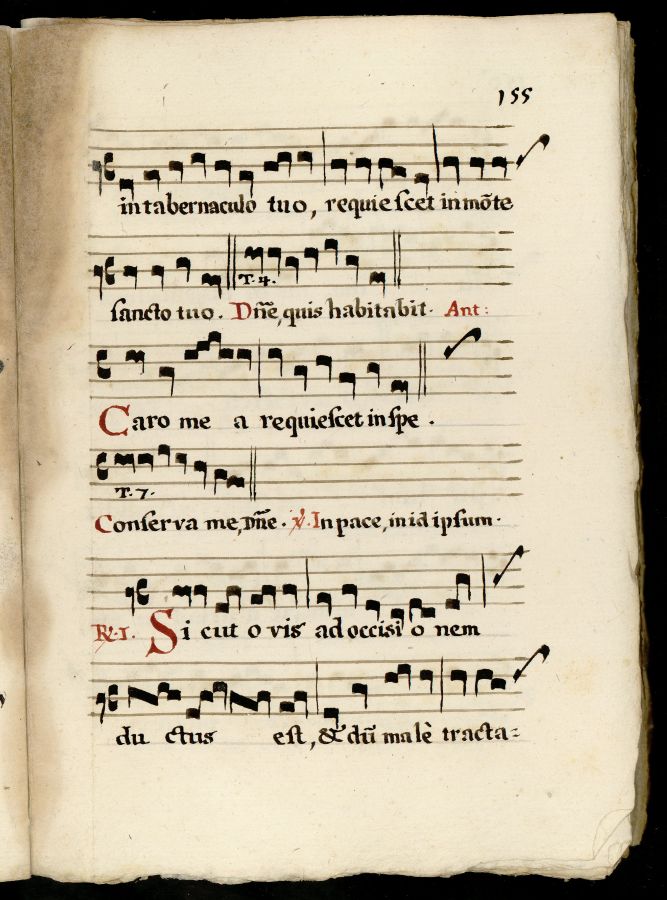 155
in tabernaculo tuo, requiescet in mõte
sancto tuo. Dñe, quis habitabit. Ant:
T. 4.
Caro me a requiescet in spe.
T. 7.
Conserva me, Dñe. ℣. In pace, in id ipsum.
℟. 1. Sicut ovis ad occisionem
ductus est, & dũ malè tracta=